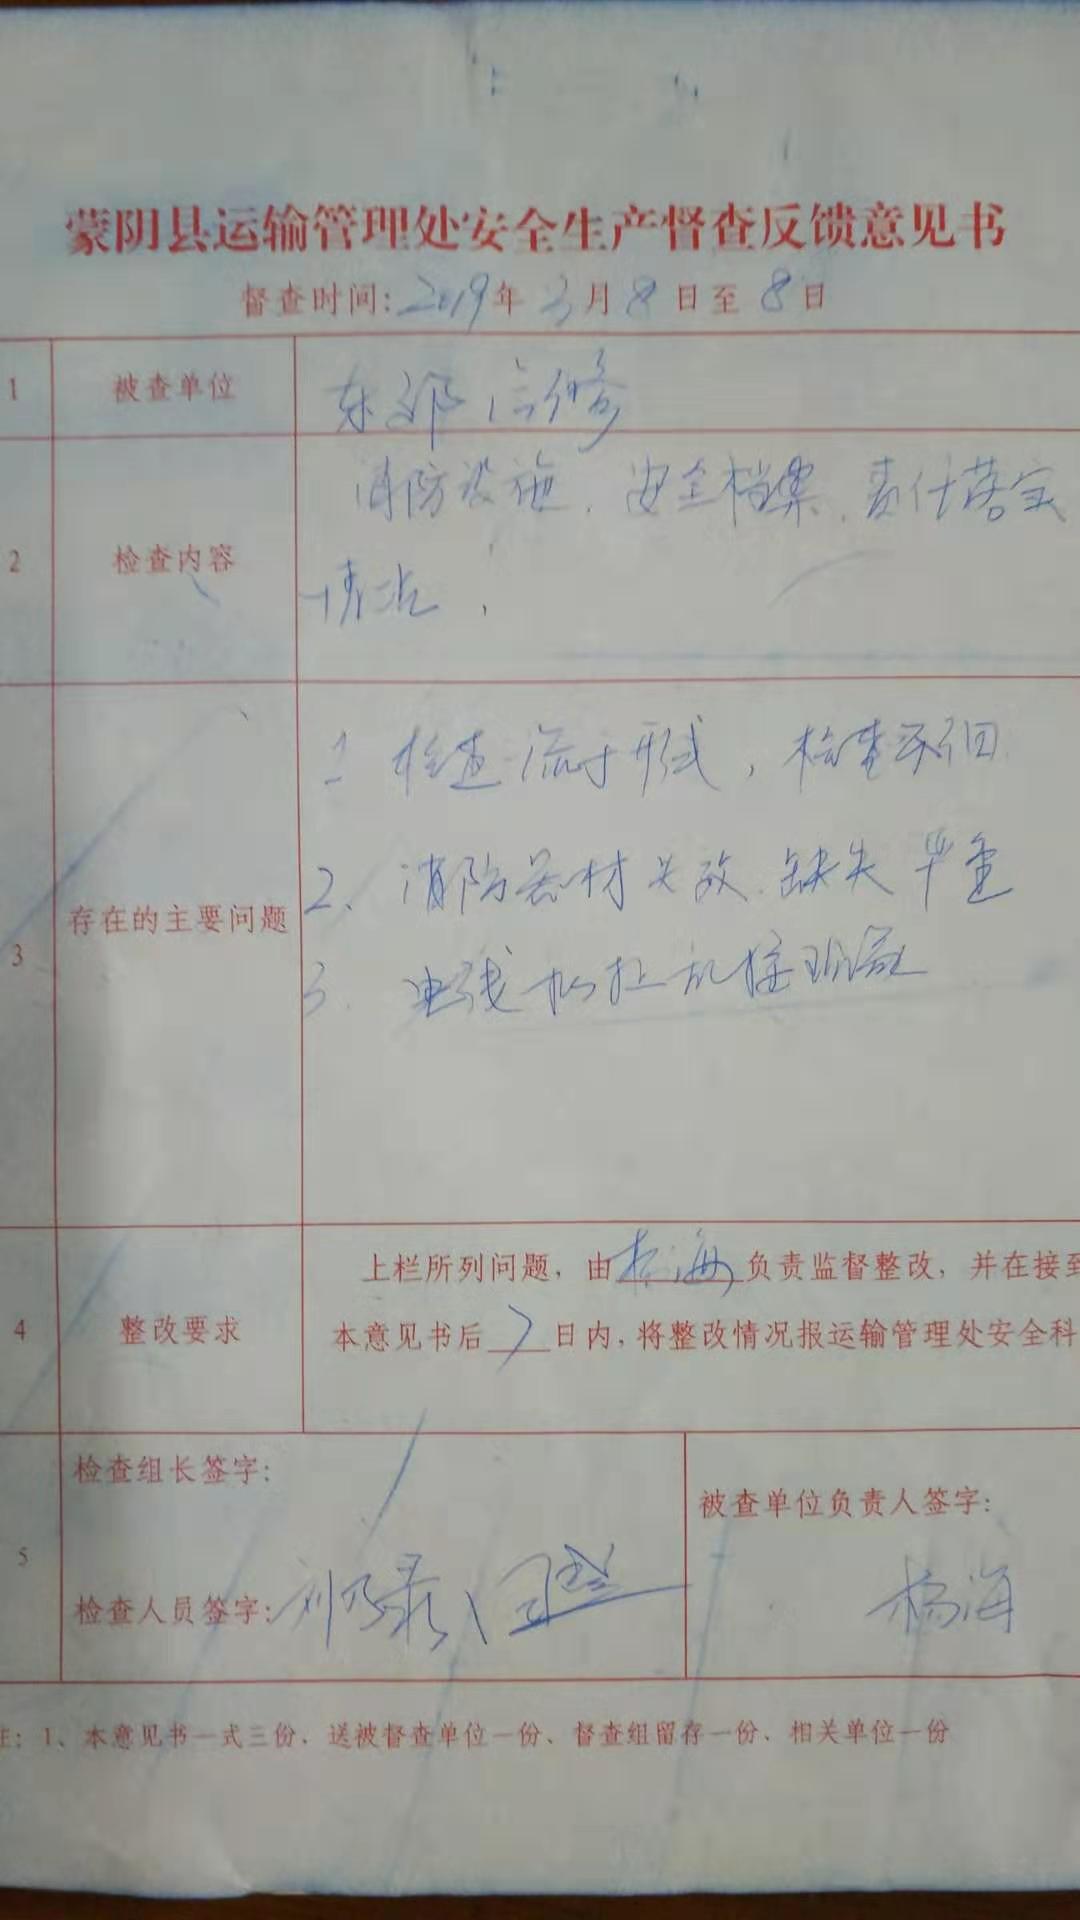 蒙阴县运输管理处安全生产督查反馈意见书
督查时间:2019年3月8日至8日
1 被查单位 东郊汽修
2 检查内容 消防设施、安全档案、责任落实
情况.
3 存在的主要问题
1 检查流于形式,检查
2、消防器材失效、缺失严重
3. 电线私拉乱接现象
4 整改要求
上栏所列问题,由杨海负责监督整改,并在接到
本意见书后7日内,将整改情况报运输管理处安全科
5
检查组长签字:
检查人员签字:
被查单位负责人签字:
杨海
注:1、本意见书一式三份、送被督查单位一份、督查组留存一份、相关单位一份